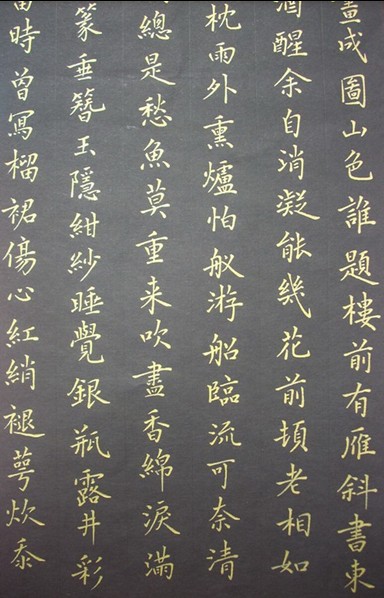 畫成圖山色誰題樓前有雁斜書東
酒醒余自消凝能幾花前頓老相如
枕雨外熏爐怕舣游船臨流可奈清
總是愁魚莫重来吹盡香綿淚滿
篆垂簪玉隱紺紗睡覺銀瓶露井彩
當時曾寫榴裙傷心紅綃褪萼炊黍